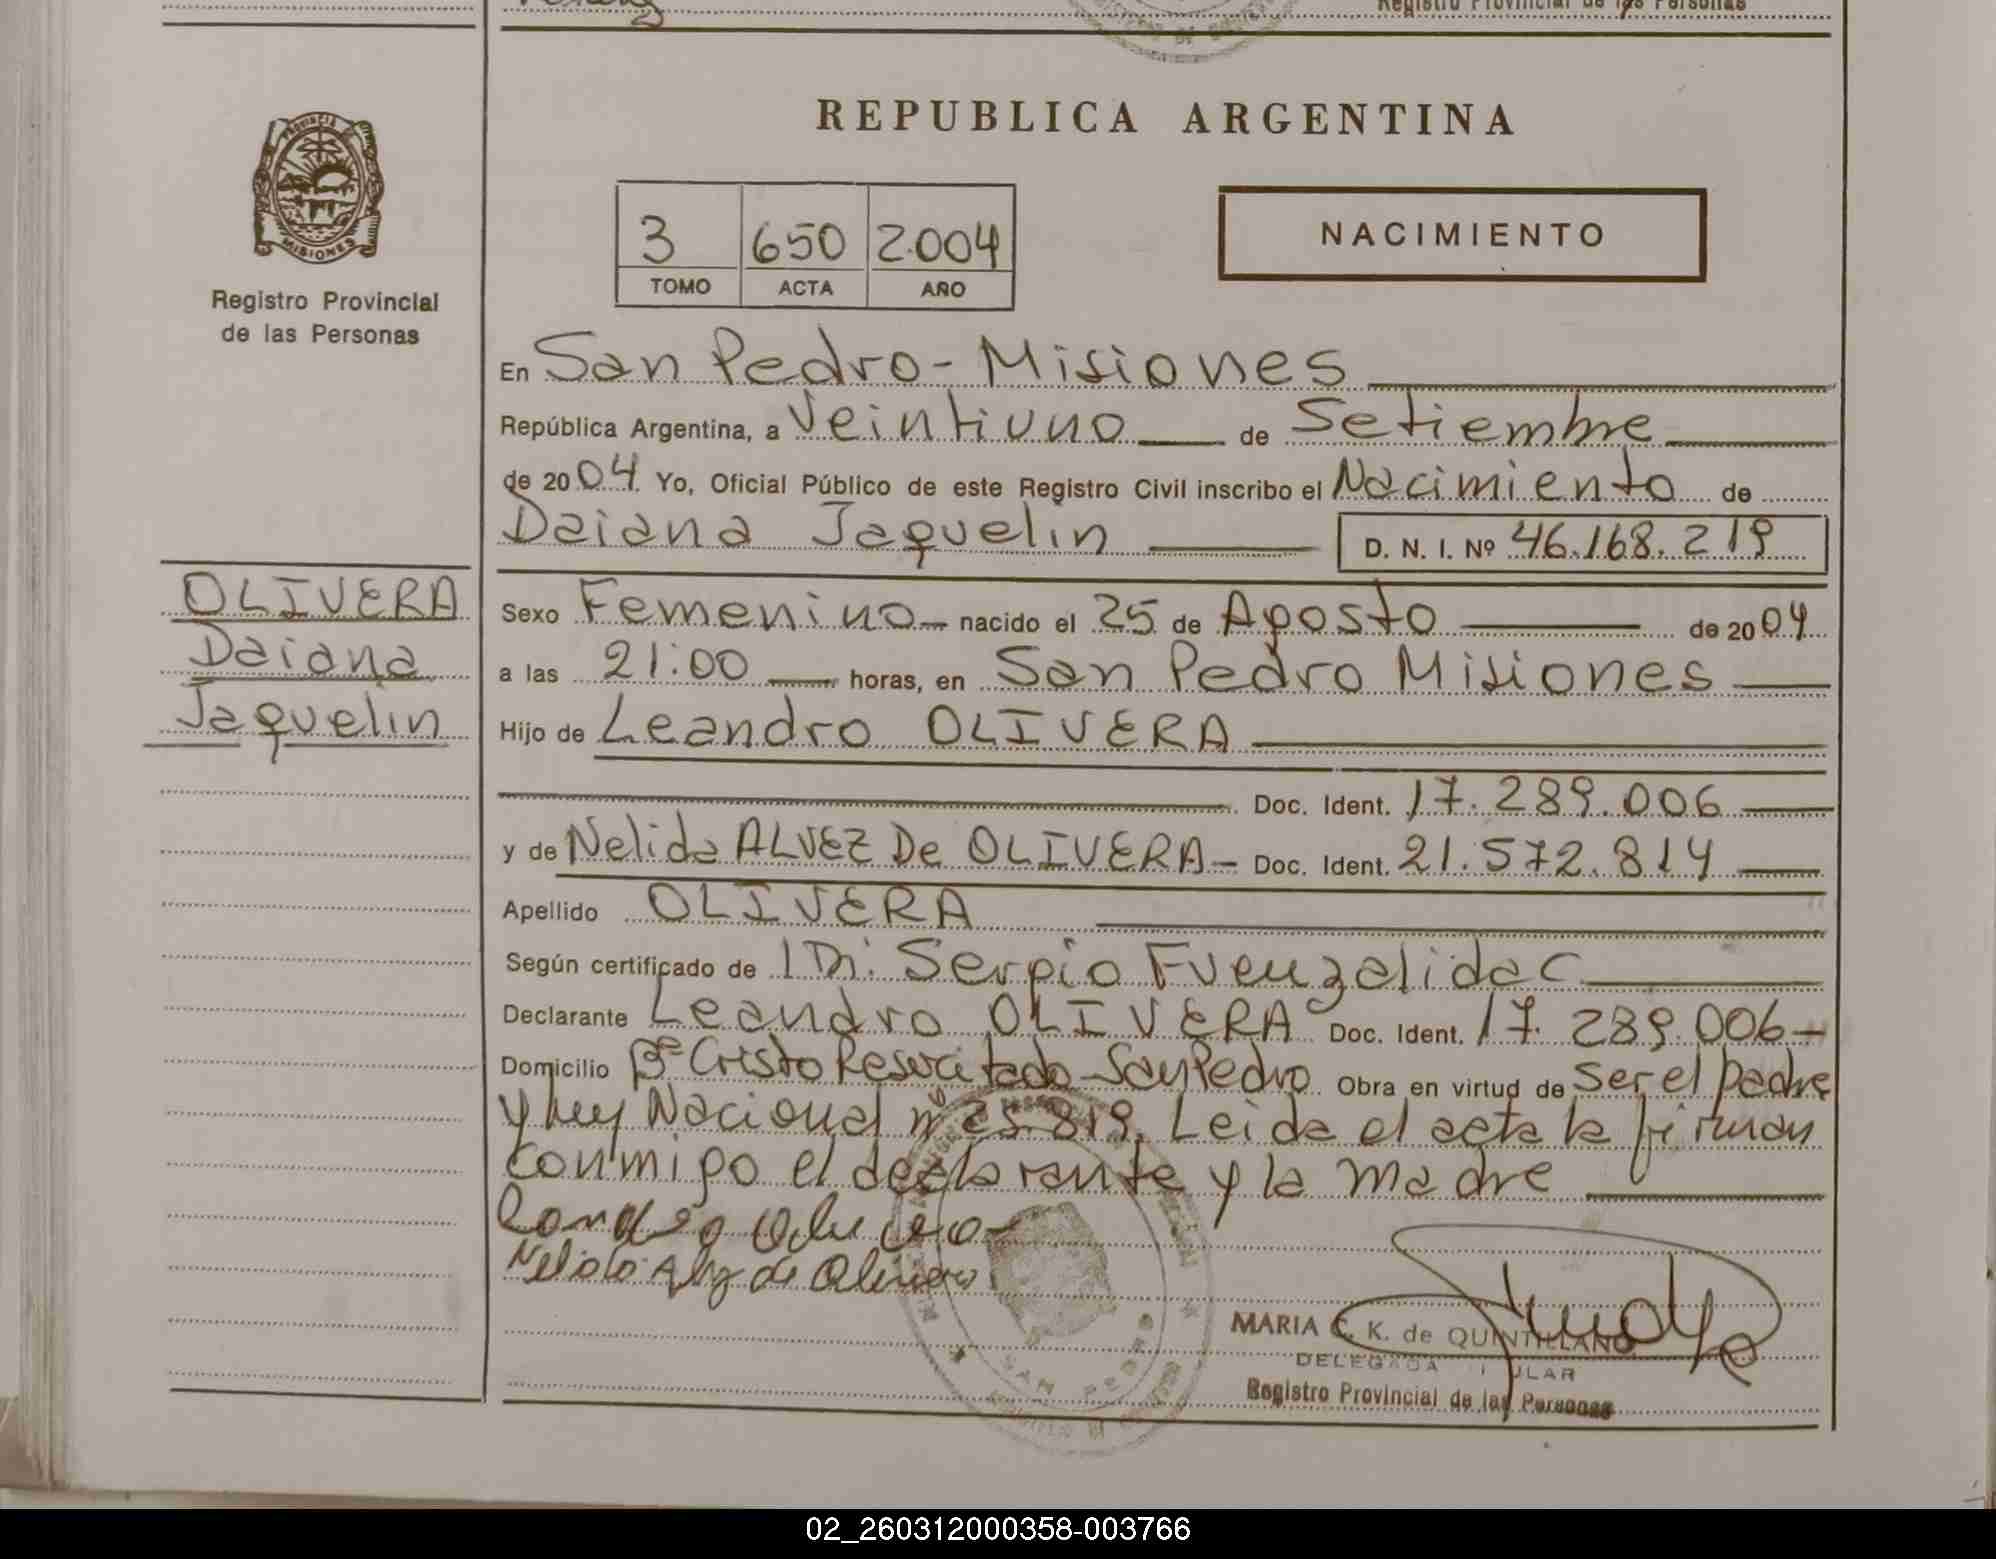 Registro Provincial de las Personas
REPUBLICA ARGENTINA
PROVINCIA
MISIONES
3 650 2.004
TOMO ACTA AÑO
NACIMIENTO
Registro Provincial
de las Personas
En San Pedro - Misiones
República Argentina, a Veintiuno de Setiembre
de 2004 Yo, Oficial Público de este Registro Civil inscribo el Nacimiento de
Daiana Jaquelin D. N. I. Nº 46.168.219
OLIVERA
Daiana
Jaquelin
Sexo Femenino nacido el 25 de Agosto de 2004
a las 21:00 horas, en San Pedro Misiones
Hijo de Leandro OLIVERA
Doc. Ident. 17.289.006
y de Nelida ALVEZ De OLIVERA - Doc. Ident. 21.572.814
Apellido OLIVERA
Según certificado de Sergio Fuenzalida C
Declarante Leandro OLIVERA Doc. Ident. 17.289.006-
Domicilio Bº Cristo Resucitado San Pedro Obra en virtud de Ser el padre
y Ley Nacional nº 25.819. Leida el acta la firman
conmigo el declarante y la madre
MARIA C. K. de QUINTILLANO
DELEGADA TITULAR
Registro Provincial de las Personas
SAN PEDRO
02_260312000358-003766